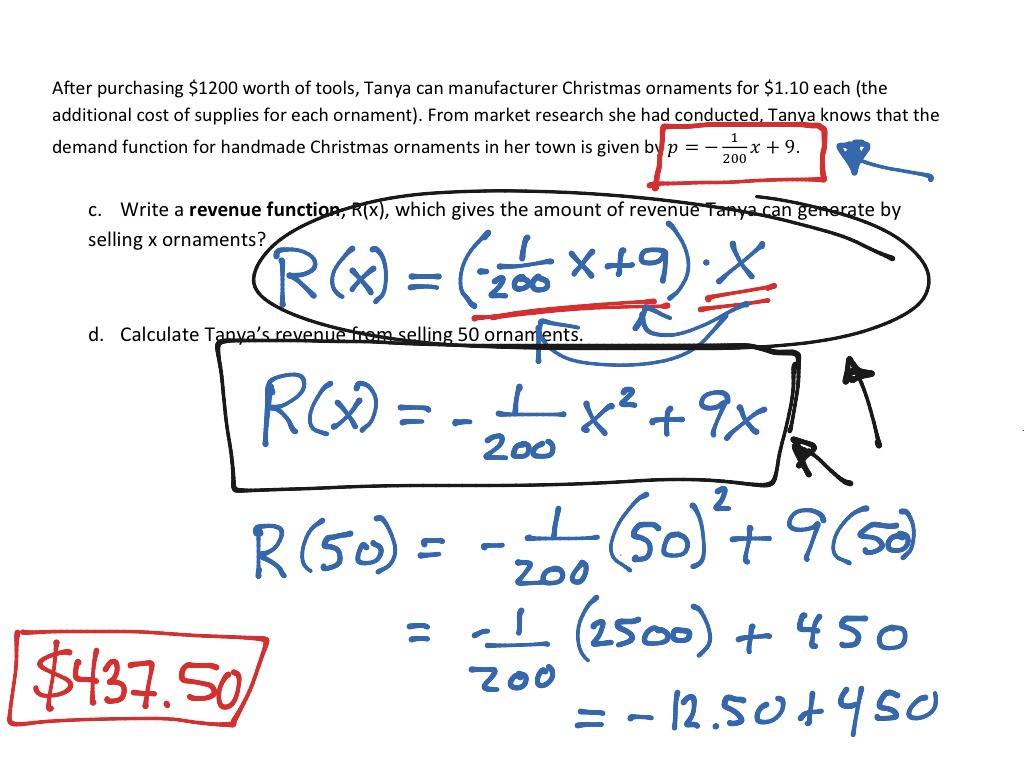 After purchasing $1200 worth of tools, Tanya can manufacturer Christmas ornaments for $1.10 each (the
additional cost of supplies for each ornament). From market research she had conducted, Tanya knows that the
demand function for handmade Christmas ornaments in her town is given by p = −1/200 x + 9.
c. Write a revenue function, R(x), which gives the amount of revenue Tanya can generate by
selling x ornaments?
R(x) = (-1/200 x+9) · x
d. Calculate Tanya's revenue from selling 50 ornaments.
R(x) = -1/200 x² + 9x
R(50) = -1/200 (50)² + 9(50)
= -1/200 (2500) + 450
= -12.50 + 450
$437.50